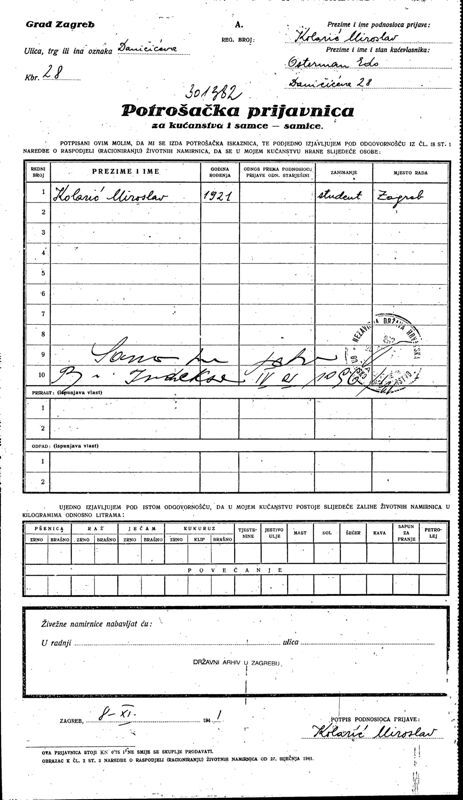 Grad Zagreb
A.
REG. BROJ:
Prezime i ime podnosioca prijave:
Kolarić Miroslav
Ulica, trg ili ina oznaka Daničićeva
Prezime i ime i stan kućevlasnika:
Osterman Edo
Kbr. 28
Daničićeva 28
301382
Potrošačka prijavnica
za kućanstva i samce – samice.
POTPISANI OVIM MOLIM, DA MI SE IZDA POTROŠAČKA ISKAZNICA, TE PODJEDNO IZJAVLJUJEM POD ODGOVORNOŠĆU IZ ČL. 18 ST. 1
NAREDBE O RASPODJELI (RACIONIRANJU) ŽIVOTNIH NAMIRNICA, DA SE U MOJEM KUĆANSTVU HRANE SLIJEDEĆE OSOBE:
REDNI BROJ PREZIME I IME GODINA ROĐENJA ODNOS PREMA PODNOSIOCU PRIJAVE ODN. STARJEŠINI ZANIMANJE MJESTO RADA
1 Kolarić Miroslav 1921 student Zagreb
2
3
4
5
6
7
8
NEZAVISNA DRŽAVA HRVATSKA
9 Samo
10 Br. Indeksa IV
PRIRAST: (Ispunjava vlast)
1
2
OTPAD: (Ispunjava vlast)
1
2
UJEDNO IZJAVLJUJEM POD ISTOM ODGOVORNOŠĆU, DA U MOJEM KUĆANSTVU POSTOJE SLIJEDEĆE ZALIHE ŽIVOTNIH NAMIRNICA U
KILOGRAMIMA ODNOSNO LITRAMA:
PŠENICA RAŽ JEČAM KUKURUZ TJESTENINE JESTIVO ULJE MAST SOL ŠEĆER KAVA SAPUN ZA PRANJE PETROLEJ
ZRNO BRAŠNO ZRNO BRAŠNO ZRNO BRAŠNO ZRNO KLIP BRAŠNO
POVEĆANJE
Živežne namirnice nabavljat ću:
U radnji ulica
DRŽAVNI ARHIV U ZAGREBU
ZAGREB, 8-XI. 194 1
POTPIS PODNOSIOCA PRIJAVE:
Kolarić Miroslav
OVA PRIJAVNICA STOJI KN 0'75 I NE SMIJE SE SKUPLJE PRODAVATI.
OBRAZAC K ČL. 2 ST. 2 NAREDBE O RASPODJELI (RACIONIRANJU) ŽIVOTNIH NAMIRNICA OD 27. SIJEČNJA 1941.